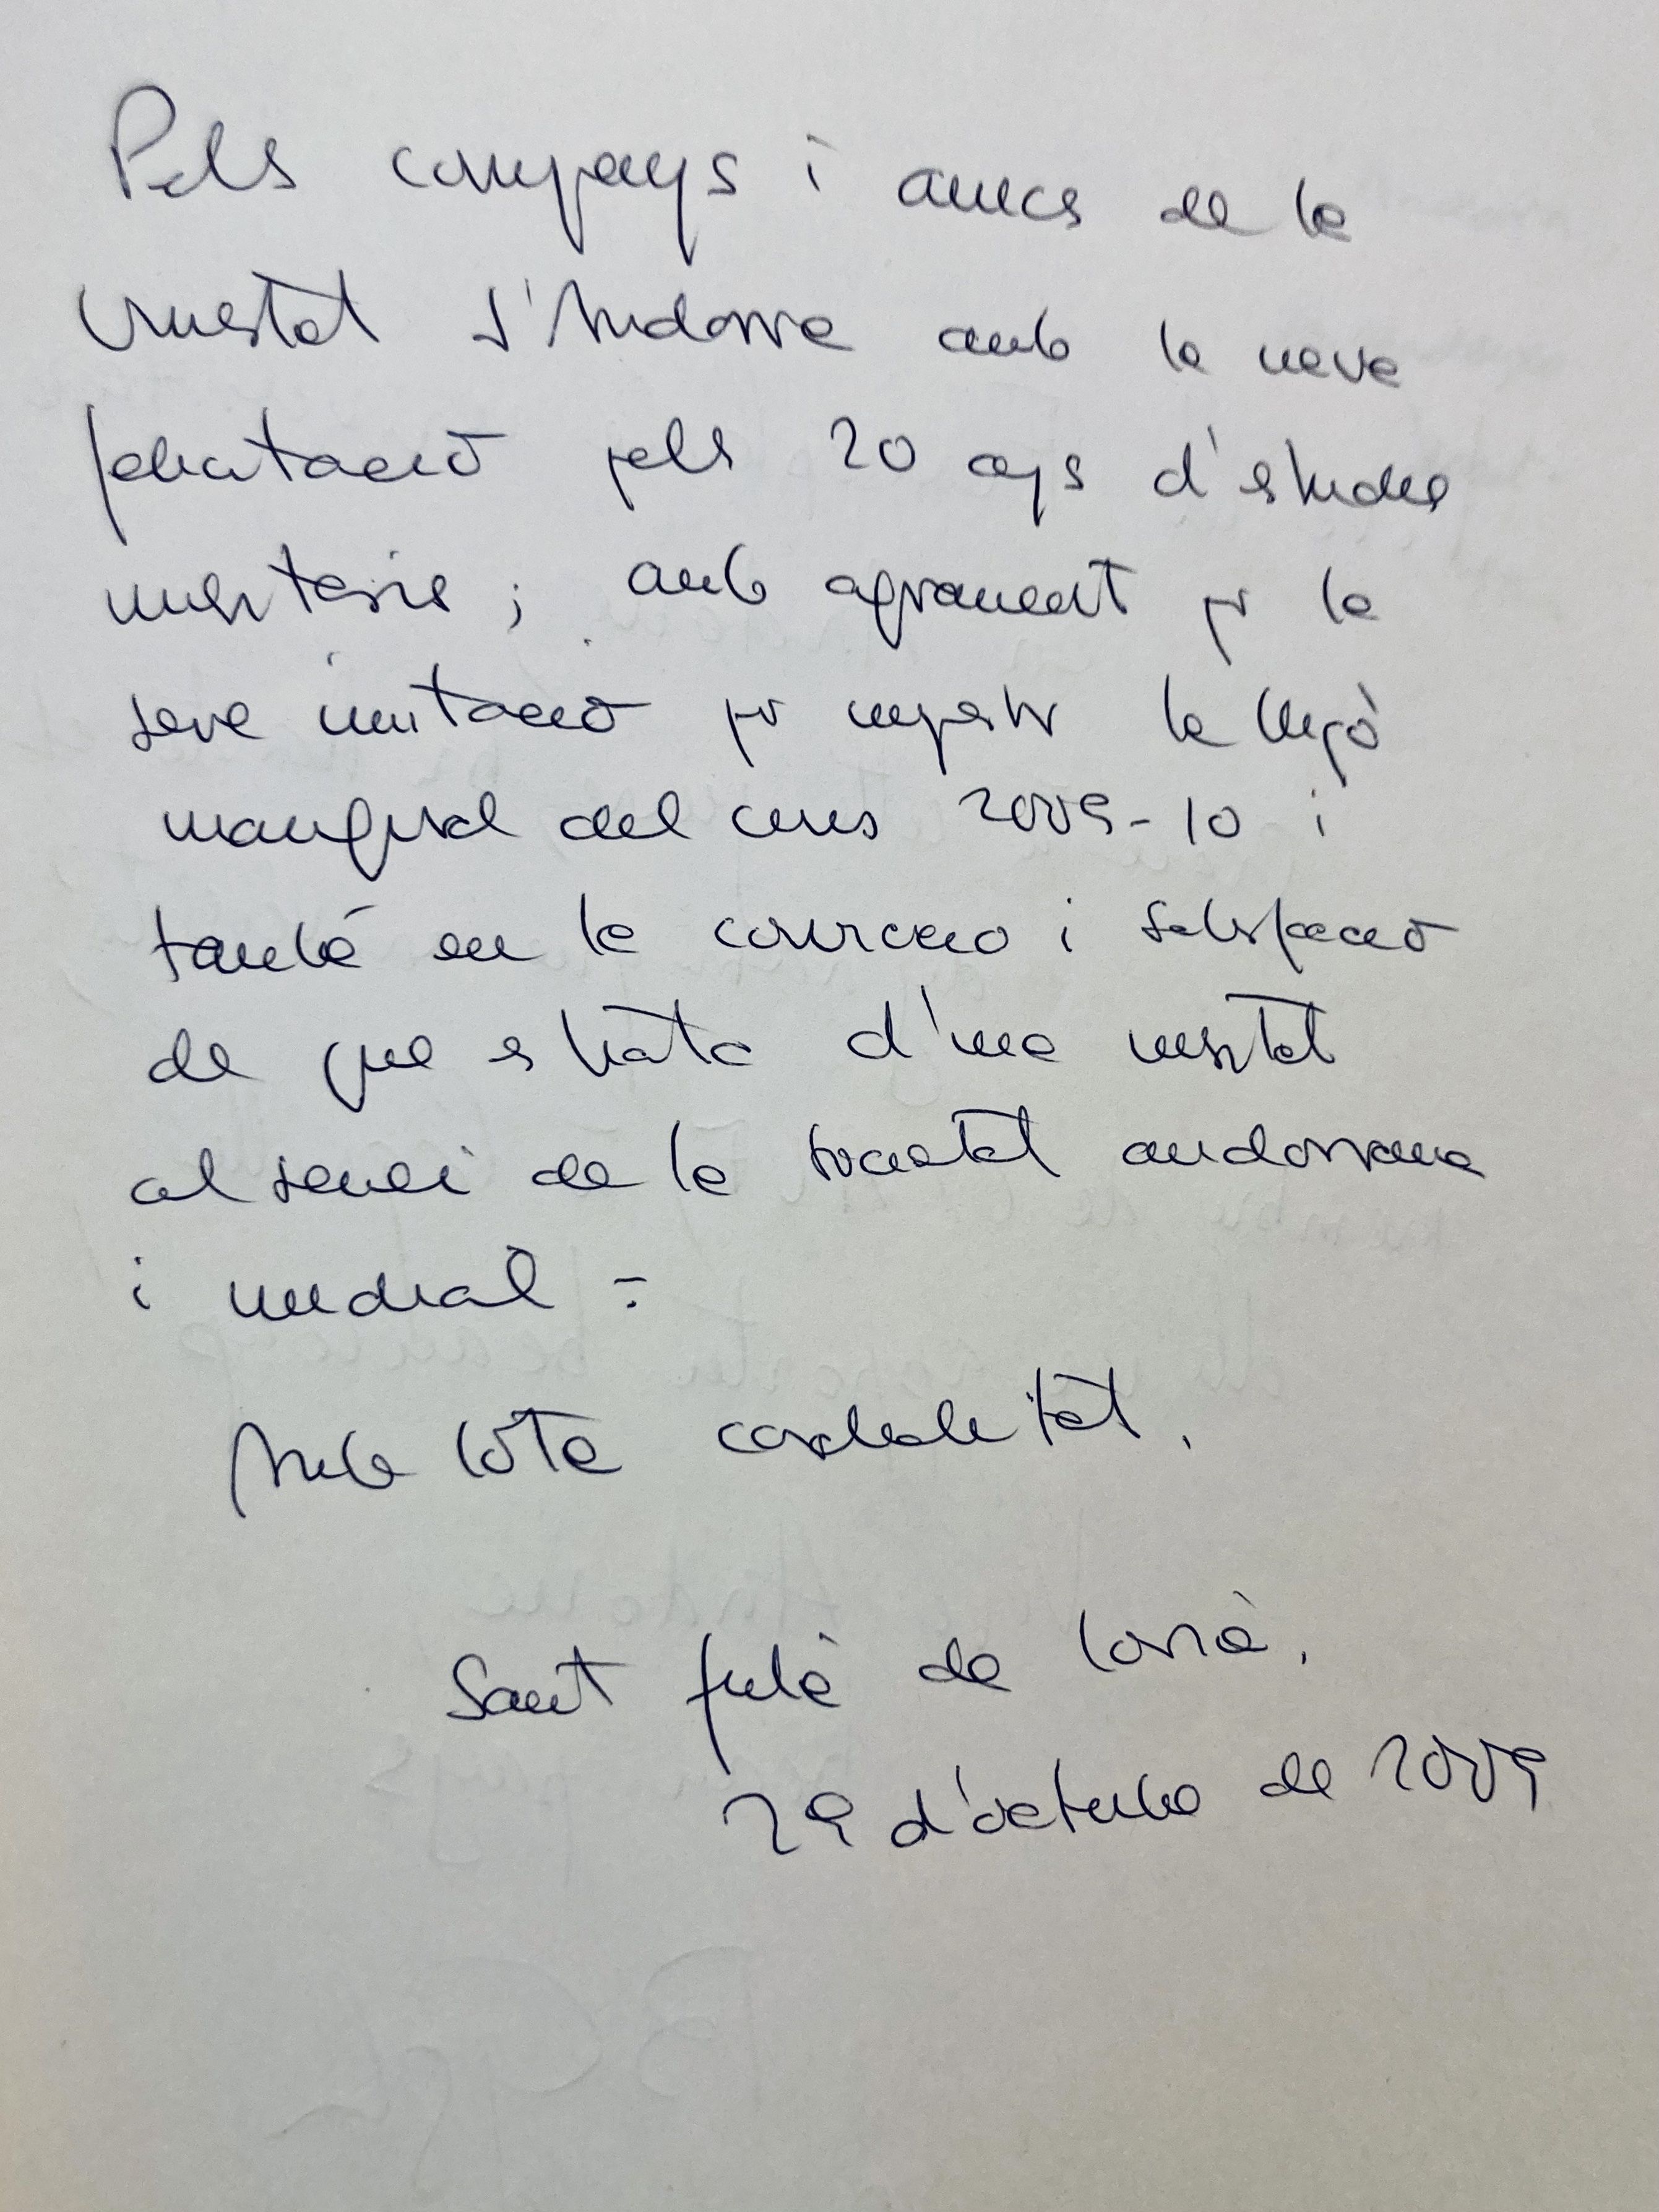 Pels companys i amics de la
Universitat d'Andorra amb la meva
felicitació pels 20 anys d'estudis
universitaris; amb agraïment per la
seva invitació per impartir la lliçó
inaugural del curs 2009-10 i
també en la convicció i satisfacció
de que es tracta d'una universitat
al servei de la societat andorrana
i mundial.
Amb tota cordialitat,
Sant Julià de Lòria,
29 d'octubre de 2009